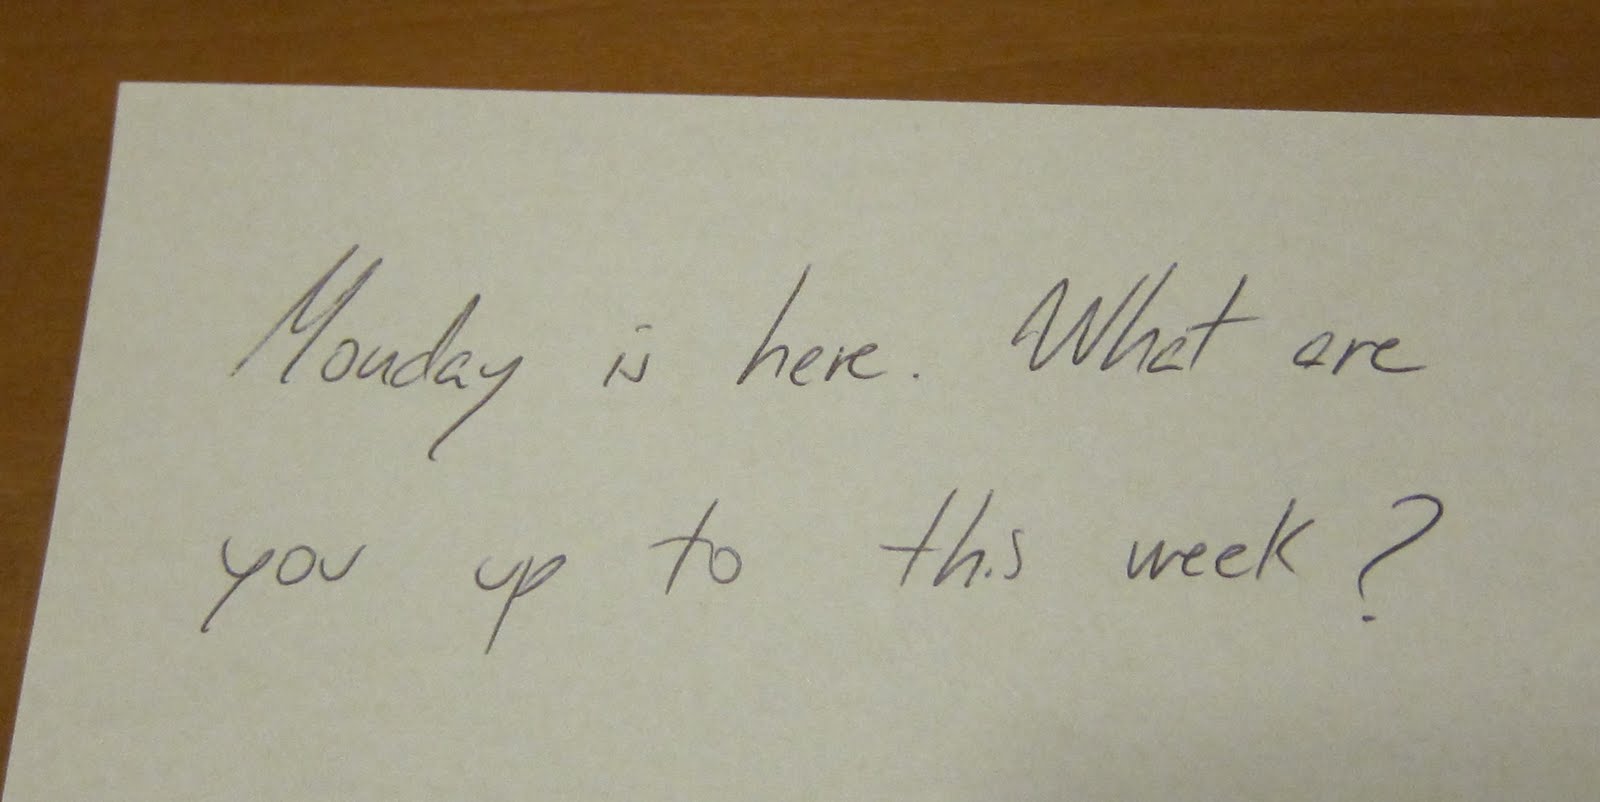 Monday is here. What are
you up to this week?